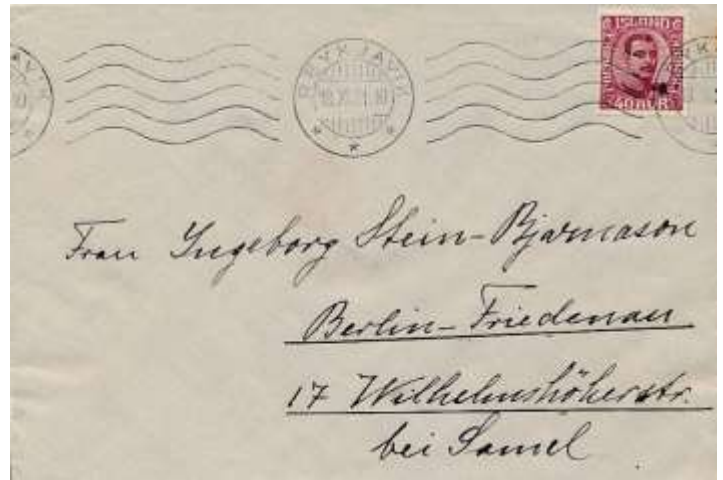 REYKJAVIK
ISLAND
40 AUR
Frau Ingeborg Stein-Bjarnason
Berlin-Friedenau
17 Wilhelmshöherstr.
bei Samel